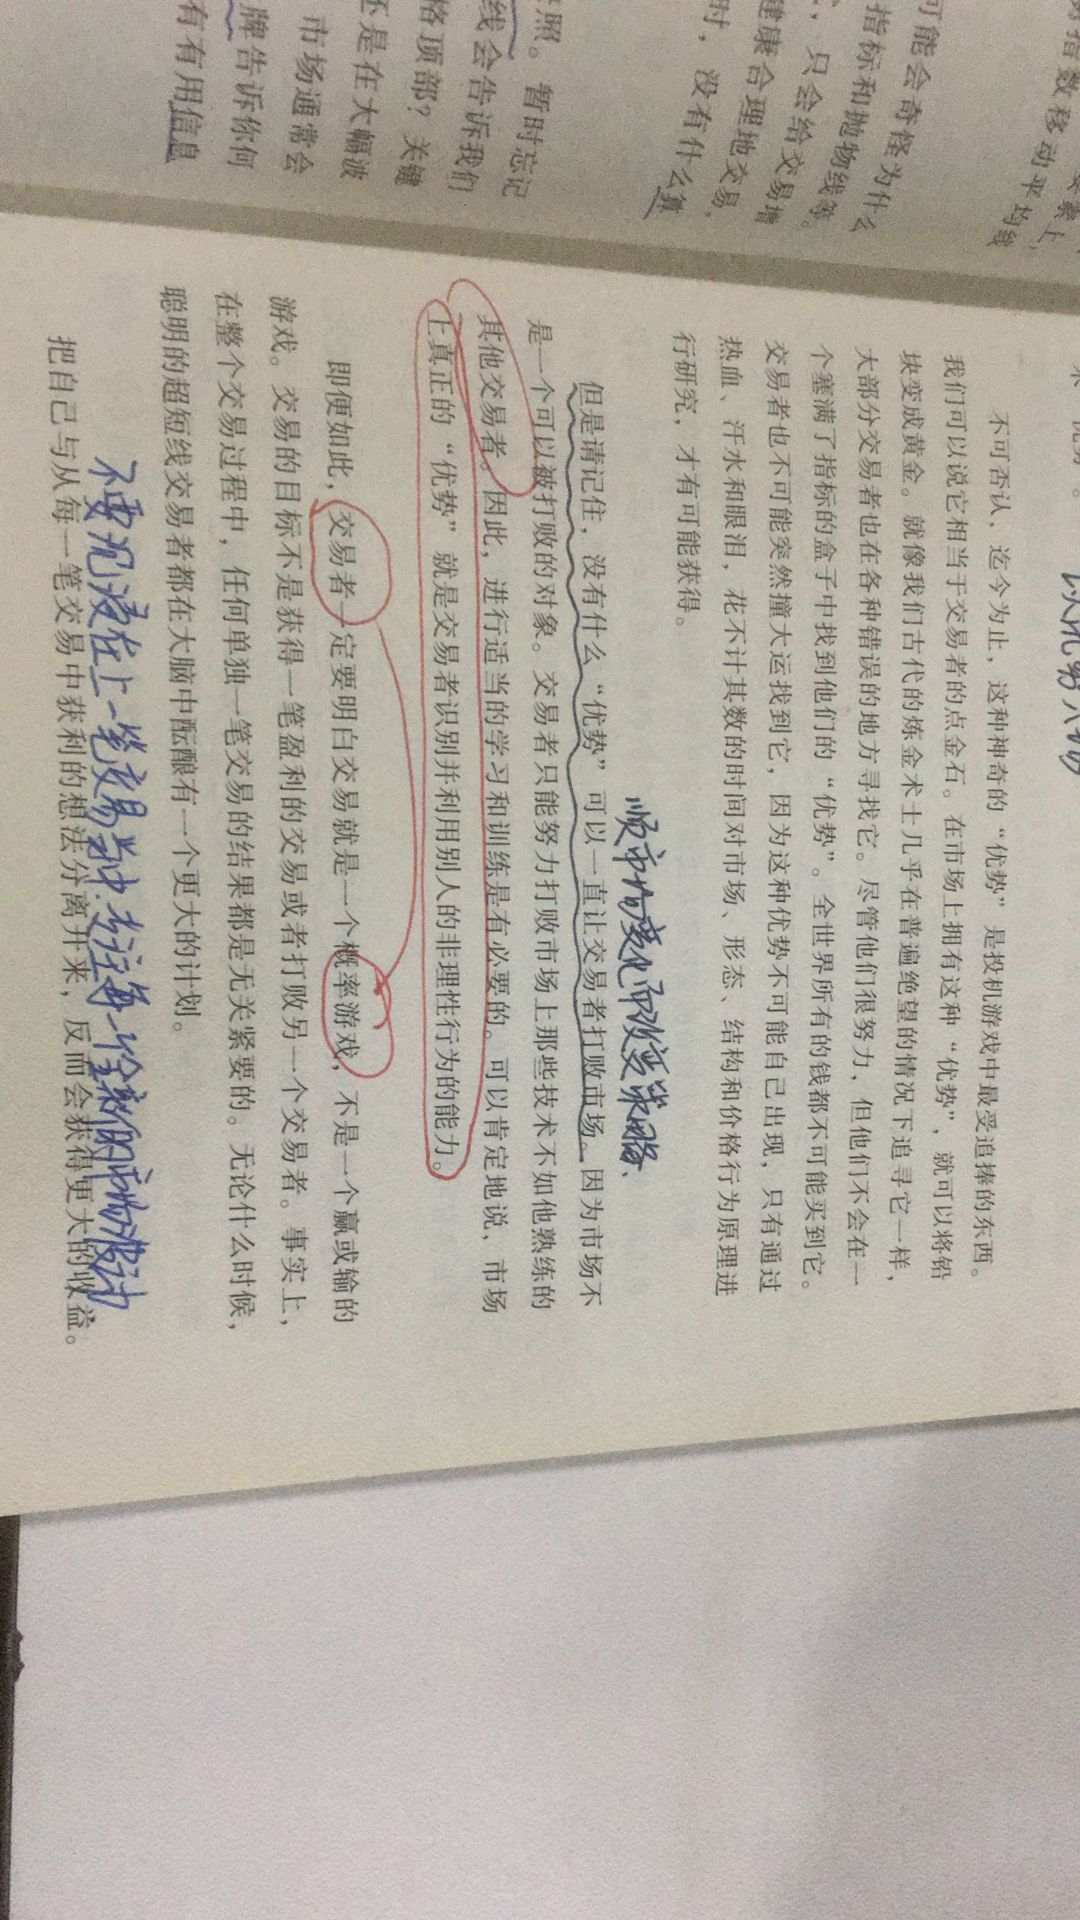 不可否认，迄今为止，这种神奇的“优势”是投机游戏中最受追捧的东西。
我们可以说它相当于交易者的点金石。在市场上拥有这种“优势”，就可以将铅
块变成黄金。就像我们古代的炼金术士几乎在普遍绝望的情况下追寻它一样，
大部分交易者也在各种错误的地方寻找它。尽管他们很努力，但他们不会在一
个塞满了指标的盒子中找到他们的“优势”。全世界所有的钱都不可能买到它。
交易者也不可能突然撞大运找到它，因为这种优势不可能自己出现，只有通过
热血、汗水和眼泪，花不计其数的时间对市场、形态、结构和价格行为原理进
行研究，才有可能获得。
顺市场变化而改变策略、
但是请记住，没有什么“优势”可以一直让交易者打败市场。因为市场不
是一个可以被打败的对象。交易者只能努力打败市场上那些技术不如他熟练的
其他交易者。因此，进行适当的学习和训练是有必要的。可以肯定地说，市场
上真正的“优势”就是交易者识别并利用别人的非理性行为的能力。
即便如此，交易者一定要明白交易就是一个概率游戏，不是一个赢或输的
游戏。交易的目标不是获得一笔盈利的交易或者打败另一个交易者。事实上，
在整个交易过程中，任何单独一笔交易的结果都是无关紧要的。无论什么时候，
聪明的超短线交易者都在大脑中酝酿有一个更大的计划。
不要沉浸在上一笔交易当中，专注每一轮新的市场波动
把自己与从每一笔交易中获利的想法分离开来，反而会获得更大的收益。
好指数移动平均线
可能会奇怪为什么
指标和抛物线等。
，只会给交易增
健康合理地交易，
时，没有什么算
照。暂时忘记
线会告诉我们
格顶部？关键
还是在大幅波
市场通常会
牌告诉你何
有有用信息